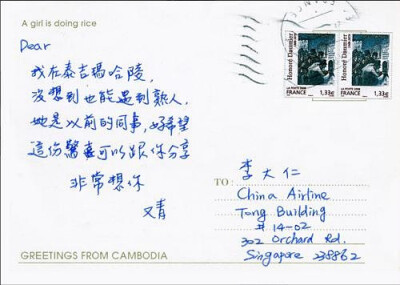 A girl is doing rice
Dear
我在泰吉瑪哈陵,
沒想到也能遇到熟人,
她是以前的同事,好希望
這份驚喜可以跟你分享
非常想你
又青
GREETINGS FROM CAMBODIA
Honoré Daumier
LA POSTE 2008
FRANCE
1,33€
Honoré Daumier
LA POSTE 2008
FRANCE
1,33€
TO:
李大仁
China Airline
Tong Building
#14-02
302 Orchard Rd.
Singapore 238862